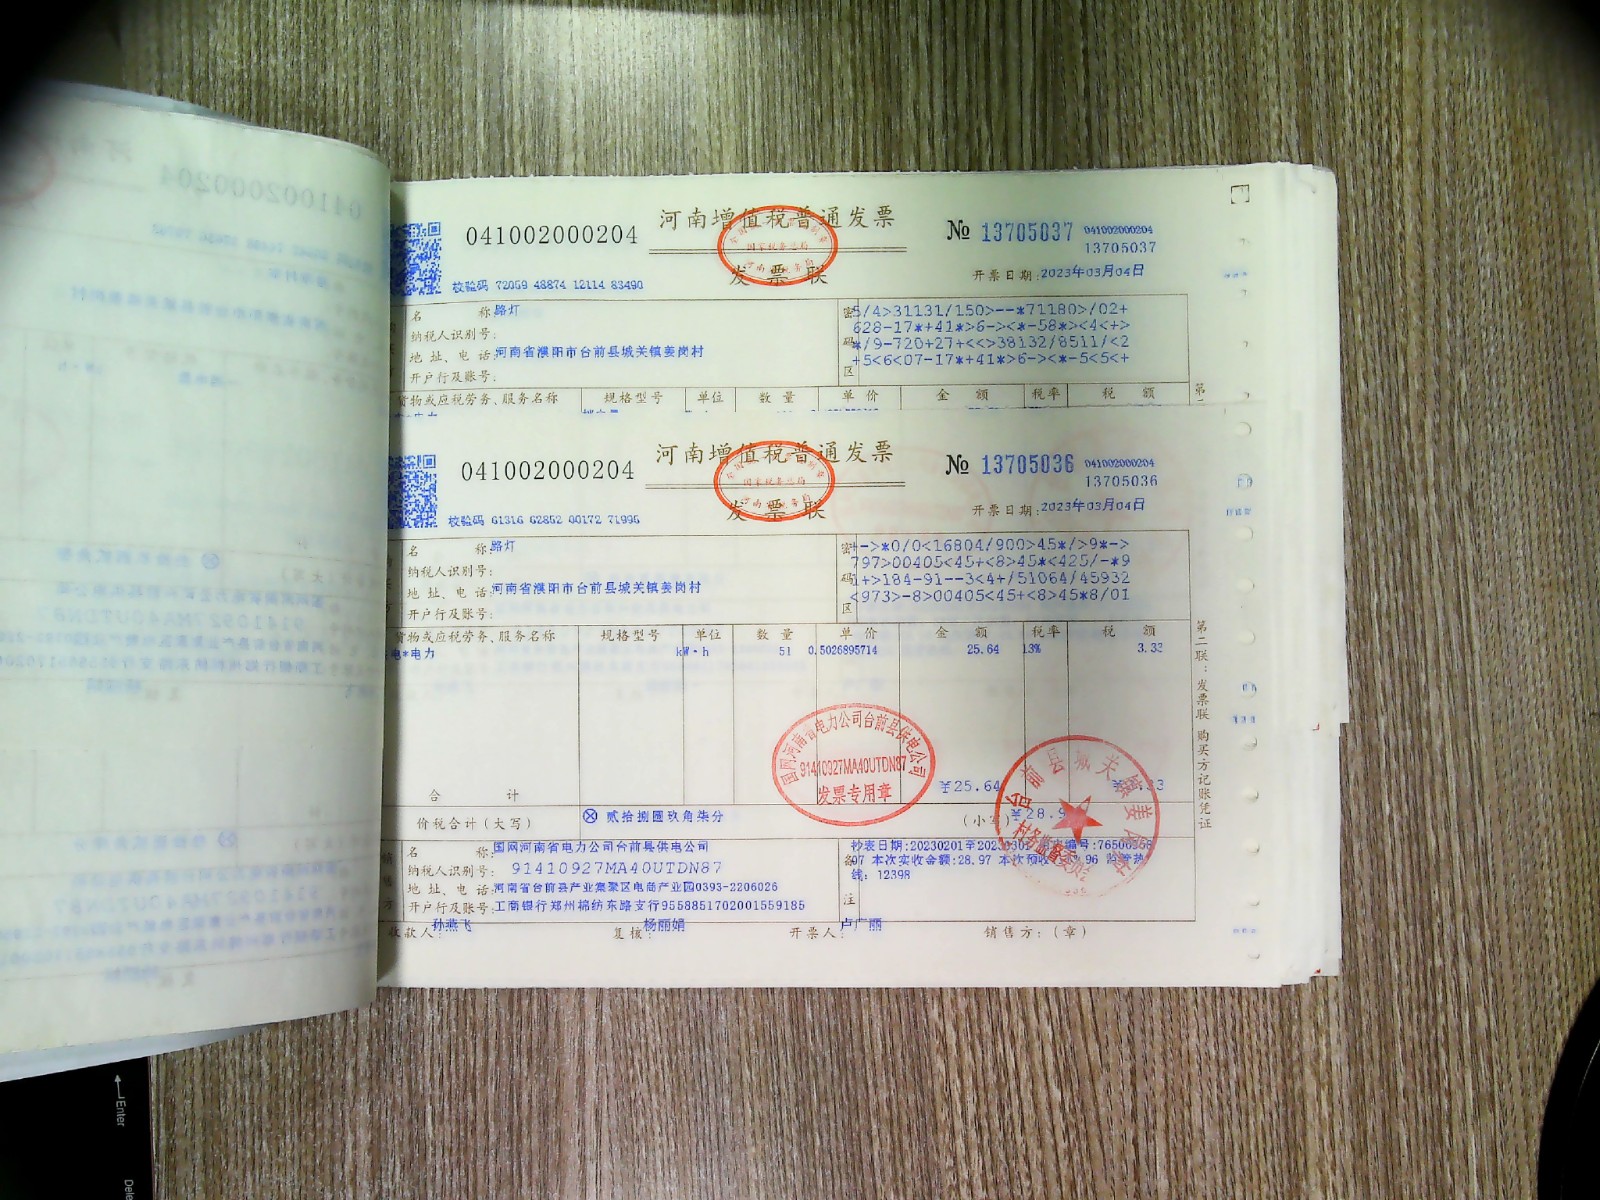 河南增值税普通发票
041002000204
№ 13705037
041002000204
13705037
发票联
校验码 72059 48874 12114 83490
开票日期:2023年03月04日
名 称:路灯
纳税人识别号:
地 址、电 话:河南省濮阳市台前县城关镇姜岗村
开户行及账号:
密码区
5/4>31131/150>--*71180>/02+
628-17*+41*>6-><*-58*><4<+>
*/9-720+27+<<>38132/8511/<2
+5<6<07-17*+41*>6-><*-5<5<+
货物或应税劳务、服务名称 规格型号 单位 数量 单价 金额 税率 税额
河南增值税普通发票
041002000204
№ 13705036
041002000204
13705036
发票联
校验码 61316 62852 00172 71995
开票日期:2023年03月04日
名 称:路灯
纳税人识别号:
地 址、电 话:河南省濮阳市台前县城关镇姜岗村
开户行及账号:
密码区
->*0/0<16804/900>45*/>9*->
797>00405<45+<8>45*<425/-*9
1+>184-91--3<4+/51064/45932
<973>-8>00405<45+<8>45*8/01
货物或应税劳务、服务名称 规格型号 单位 数量 单价 金额 税率 税额
电*电力 kW·h 51 0.5026895714 25.64 13% 3.33
国网河南省电力公司台前县供电公司
91410927MA40UTDN87
发票专用章
合 计 ¥25.64
价税合计(大写) ⊗ 贰拾捌圆玖角柒分 (小写)
村务监督委员会
名 称:国网河南省电力公司台前县供电公司
纳税人识别号: 91410927MA40UTDN87
地 址、电 话:河南省台前县产业集聚区电商产业园0393-2206026
开户行及账号:工商银行郑州棉纺东路支行9558851702001559185
备注
抄表日期:20230201至
本次实收金额:28.97 本次预收
线: 12398
收款人:孙燕飞 复核:杨丽娟 开票人:卢广丽 销售方:(章)
第二联:发票联 购买方记账凭证
Enter